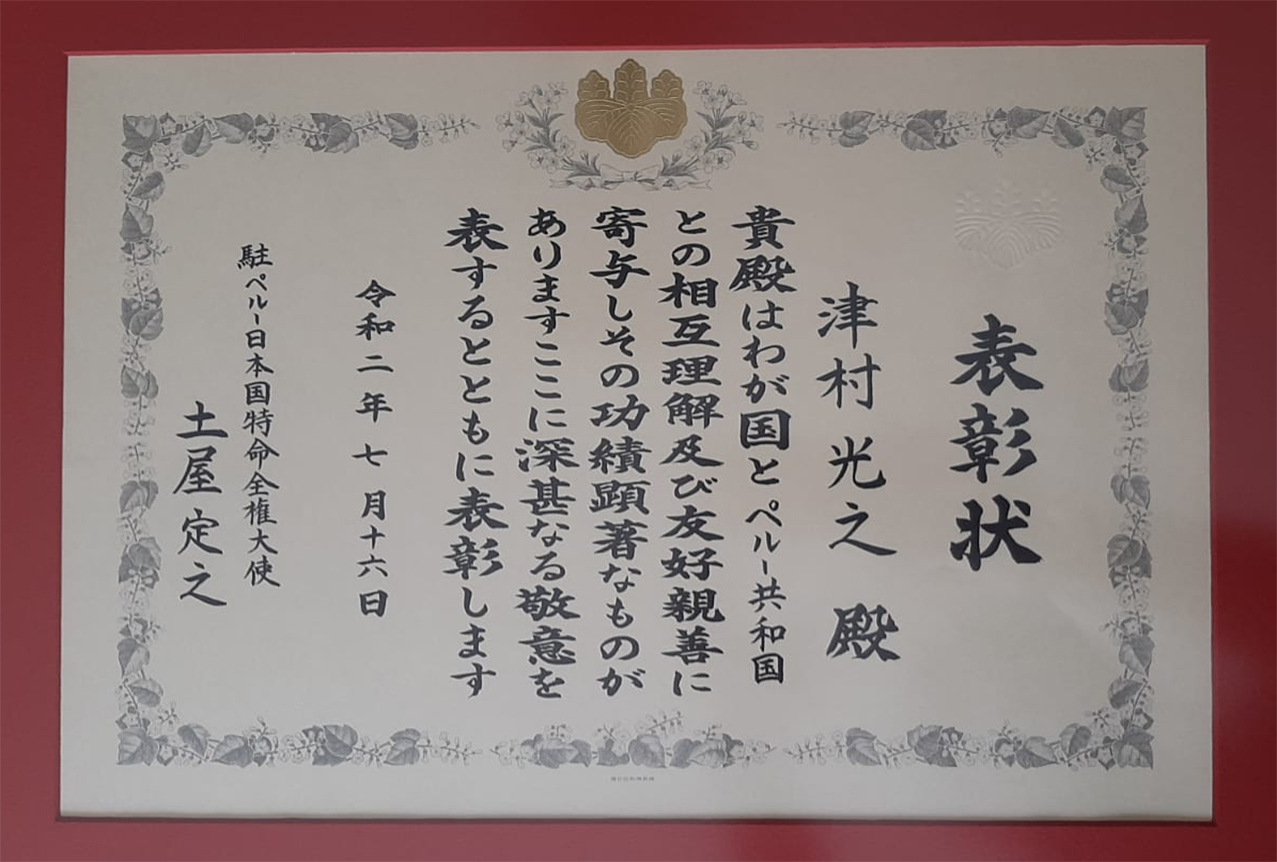 表彰状
津村光之 殿
貴殿はわが国とペルー共和国
との相互理解及び友好親善に
寄与しその功績顕著なものが
ありますここに深甚なる敬意を
表するとともに表彰します
令和二年七月十六日
駐ペルー日本国特命全権大使
土屋定之